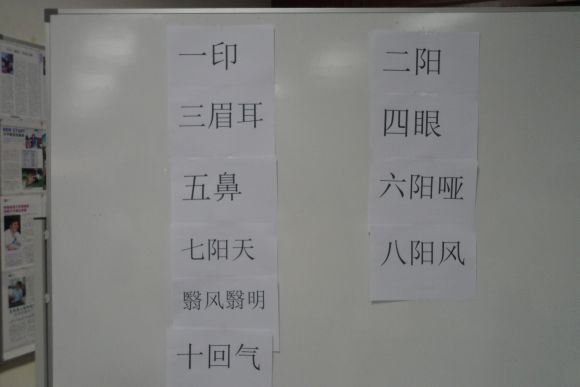 一印
二阳
三眉耳
四眼
五鼻
六阳哑
七阳天
八阳风
翳风翳明
十回气